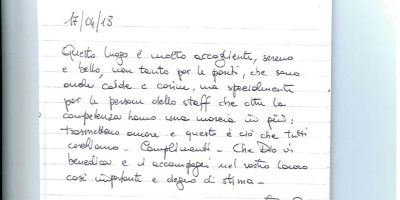 17/04/13
Questo luogo è molto accogliente, sereno
e bello, non tanto per le pareti, che sono
anche calde e carine, ma specialmente
per le persone dello staff che oltre la
competenza hanno una marcia in più:
trasmettono amore e questo è ciò che tutti
cerchiamo - Complimenti - Che Dio vi
benedica e vi accompagni nel vostro lavoro
così importante e degno di stima -